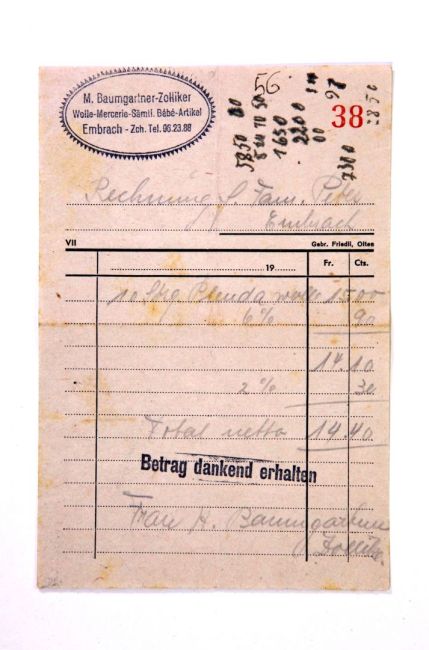 M. Baumgartner-Zolliker
Wolle-Mercerie-Sämtl. Bébé-Artikel
Embrach - Zch. Tel. 96.23.88
56
38
Rechnung f. Fam. Peter
Embrach
VII Gebr. Friedli, Olten
19 Fr. Cts.
10 Stg. wolle 15 00
6 % 90
14.10
2 % 30
Total netto 14.40
Betrag dankend erhalten
Frau H. Baumgartner
Zollik.